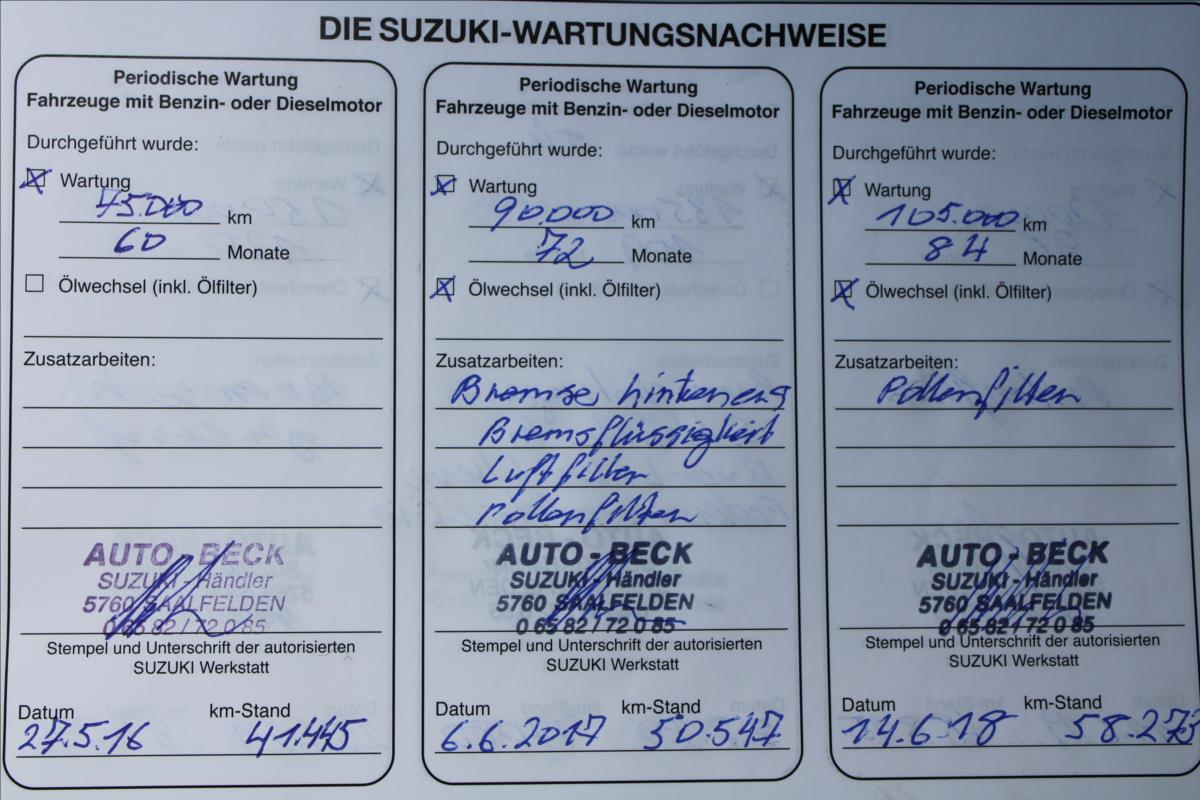 DIE SUZUKI-WARTUNGSNACHWEISE
Periodische Wartung
Fahrzeuge mit Benzin- oder Dieselmotor
Durchgeführt wurde:
Wartung
75.000 km
60 Monate
Ölwechsel (inkl. Ölfilter)
Zusatzarbeiten:
AUTO - BECK
SUZUKI - Händler
5760 SAALFELDEN
0 65 82 / 72 0 85
Stempel und Unterschrift der autorisierten
SUZUKI Werkstatt
Datum km-Stand
27.5.16 41.445
Periodische Wartung
Fahrzeuge mit Benzin- oder Dieselmotor
Durchgeführt wurde:
Wartung
90.000 km
72 Monate
Ölwechsel (inkl. Ölfilter)
Zusatzarbeiten:
Bremse hinten
Bremsflüssigkeit
Luftfilter
Pollenfilter
AUTO - BECK
SUZUKI - Händler
5760 SAALFELDEN
0 65 82 / 72 0 85
Stempel und Unterschrift der autorisierten
SUZUKI Werkstatt
Datum km-Stand
6.6.2017 50.547
Periodische Wartung
Fahrzeuge mit Benzin- oder Dieselmotor
Durchgeführt wurde:
Wartung
105.000 km
84 Monate
Ölwechsel (inkl. Ölfilter)
Zusatzarbeiten:
Pollenfilter
AUTO - BECK
SUZUKI - Händler
5760 SAALFELDEN
0 65 82 / 72 0 85
Stempel und Unterschrift der autorisierten
SUZUKI Werkstatt
Datum km-Stand
14.6.18 58.273